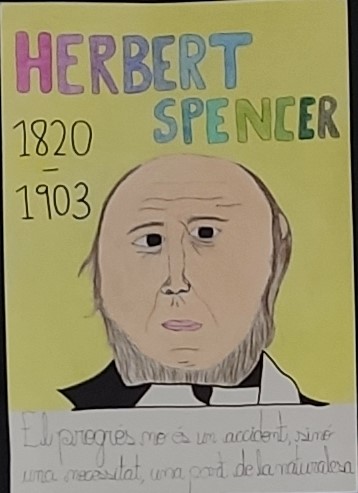 HERBERT
SPENCER
1820
-
1903
El progrés no és un accident, sinó
una necessitat, una part de la naturalesa